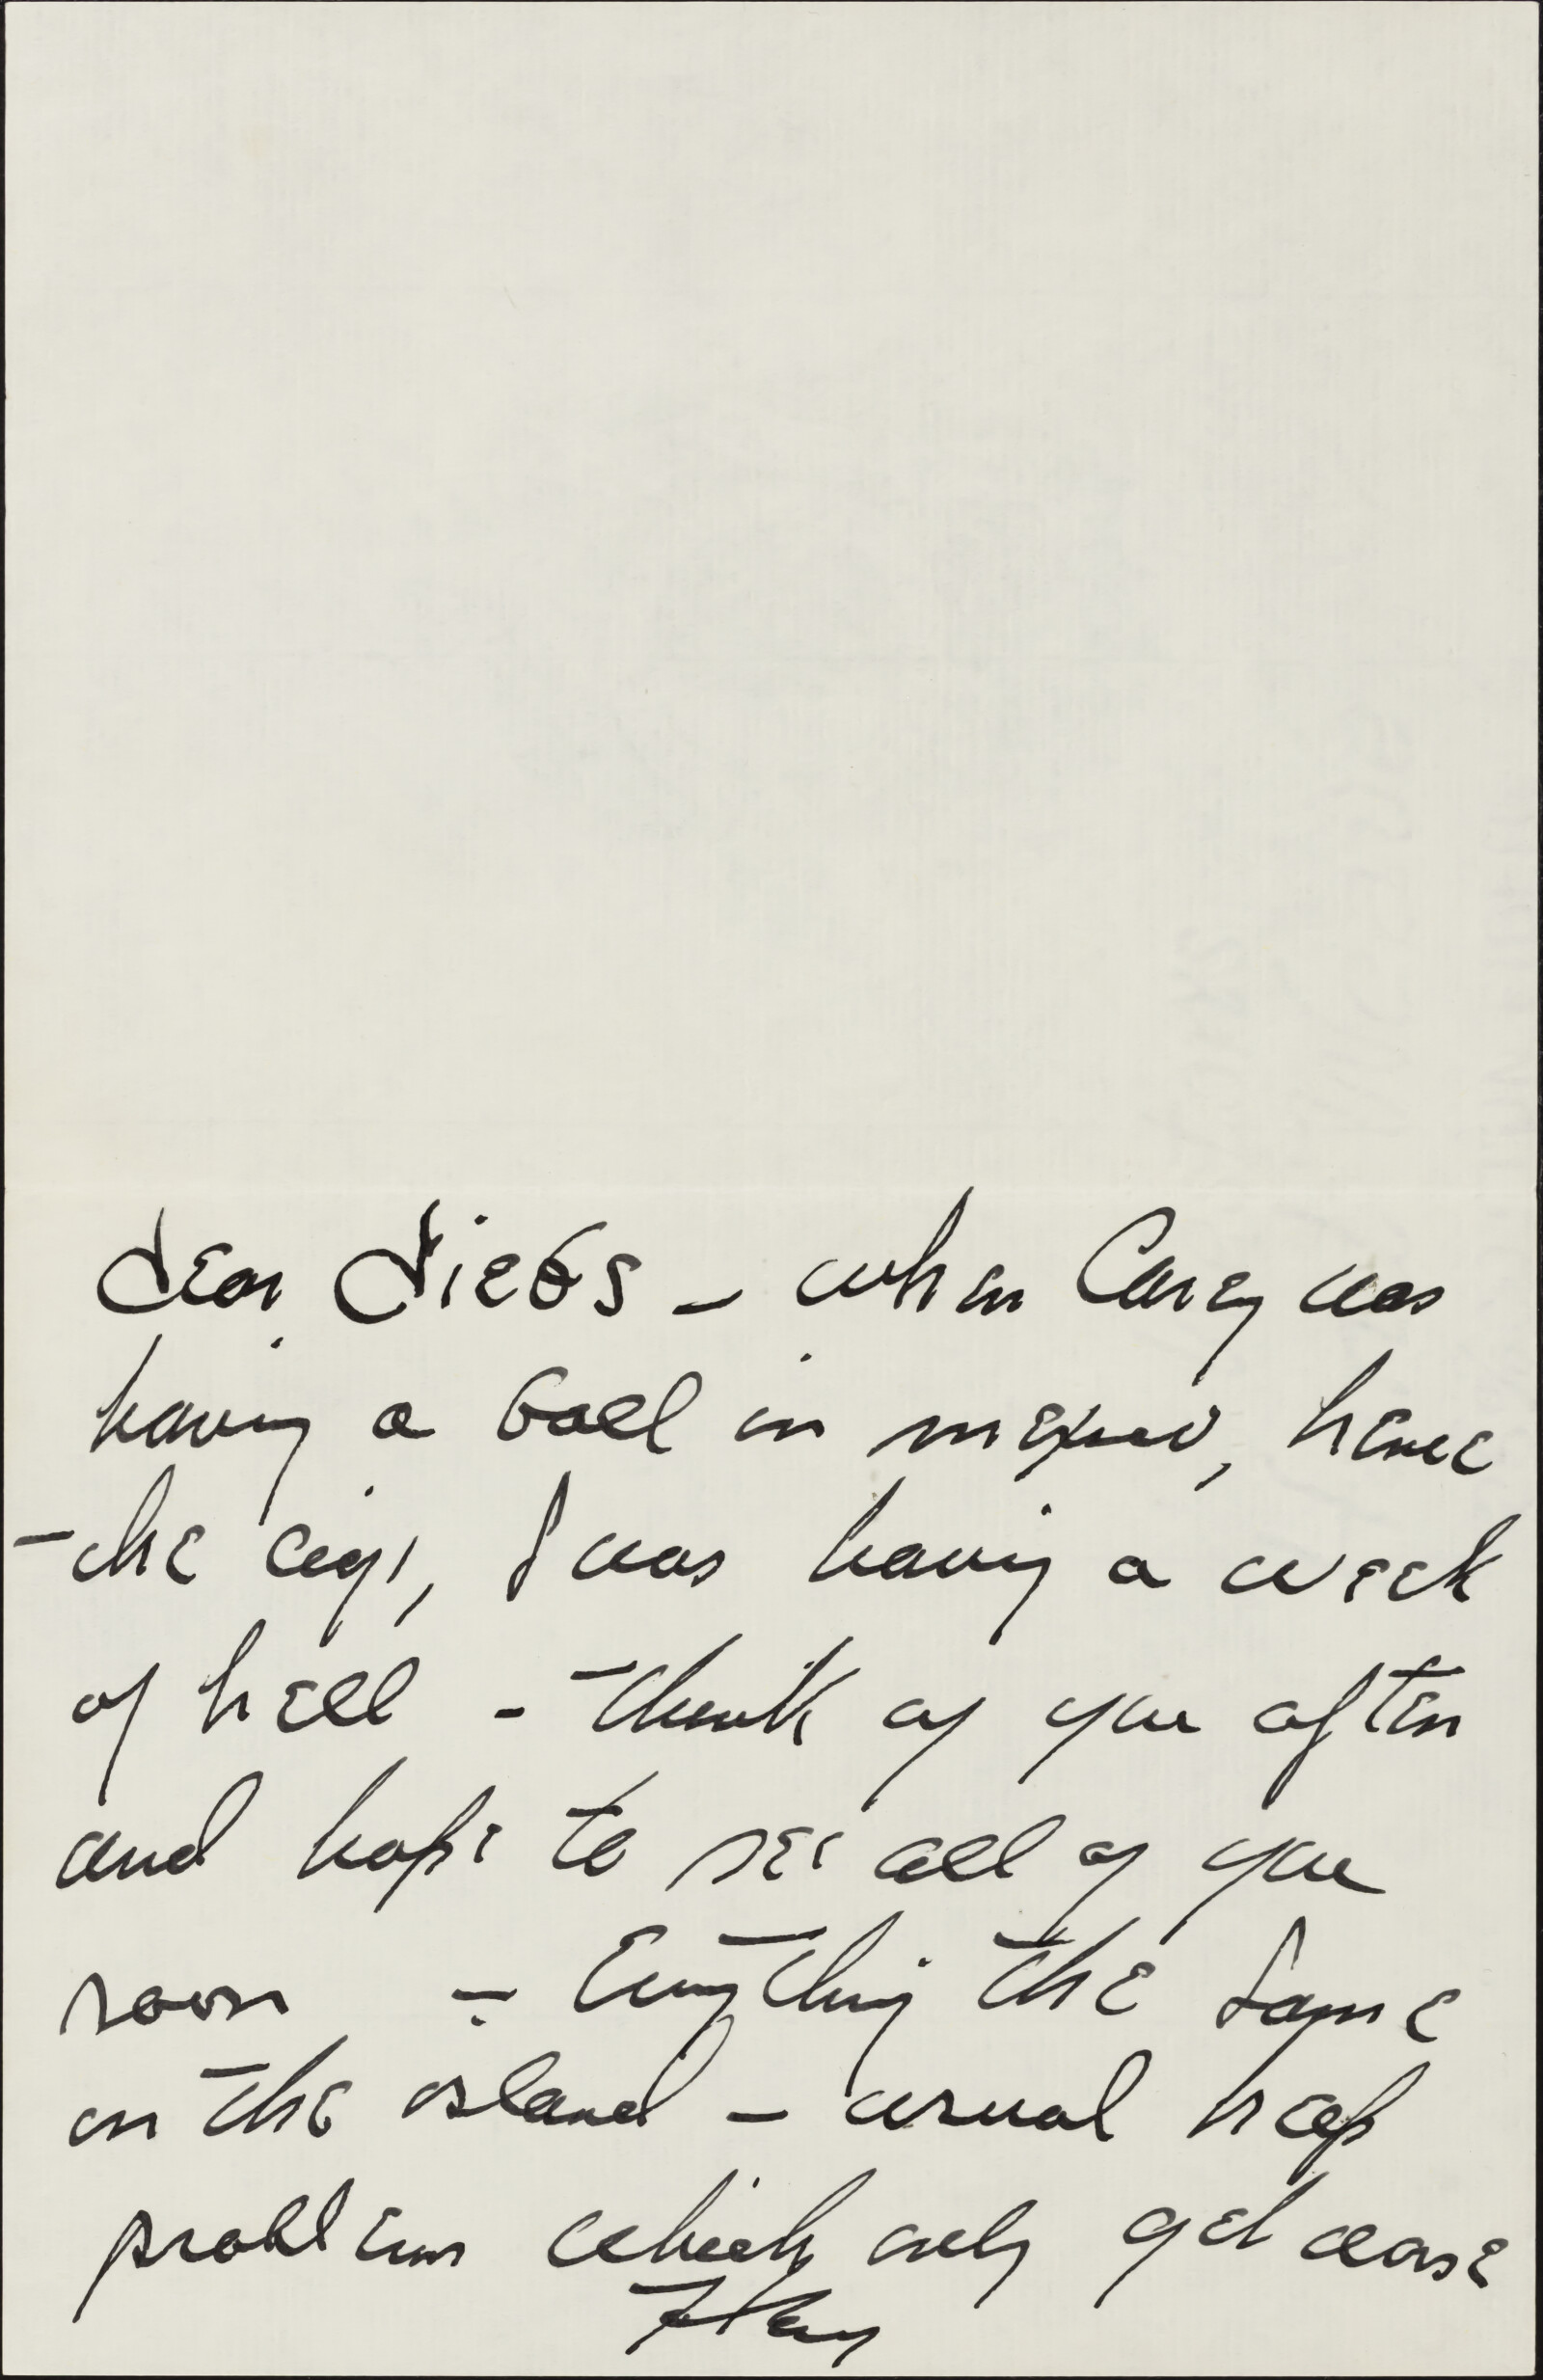 Dear Diebs - when Carey was
having a ball in Mexico, hence
the cigs, I was having a week
of hell - think of you often
and hope to see all of you
soon - Everything the same
on the island - usual
problems which only get worse